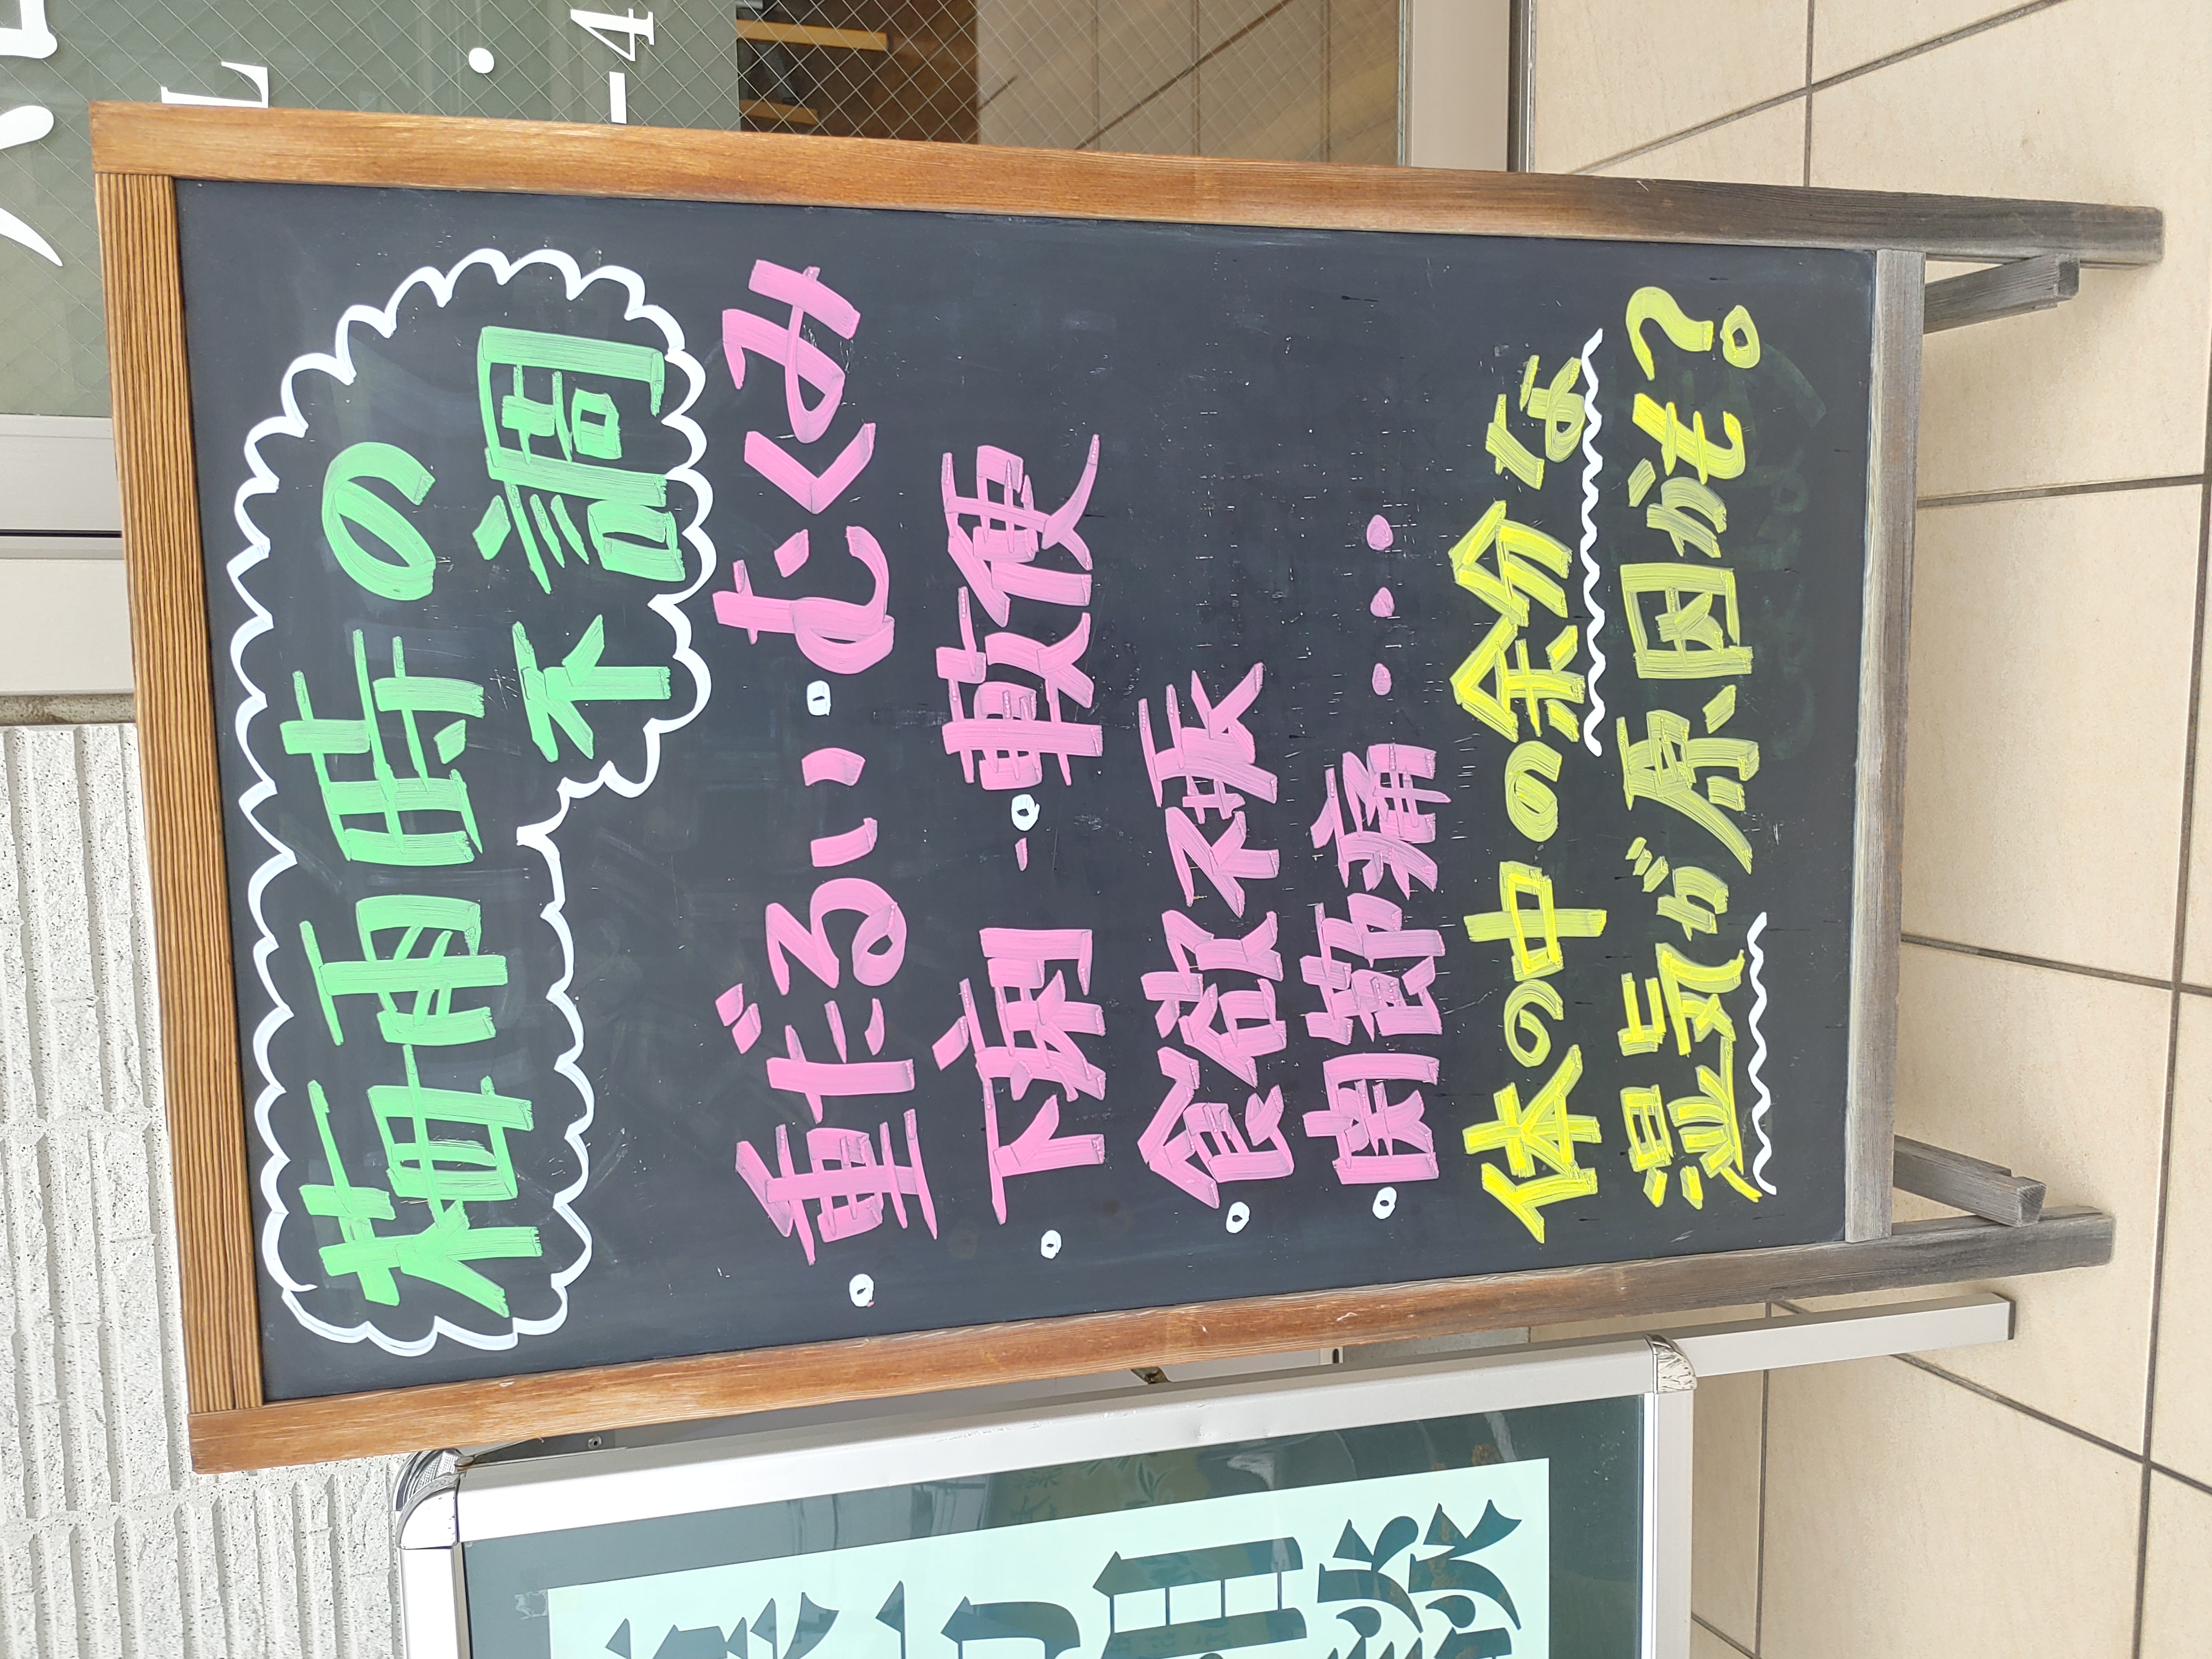 梅雨時の
不調
。重だるい。むくみ
。下痢。軟便
。食欲不振
。関節痛・・・
体の中の余分な
湿気が原因かも?